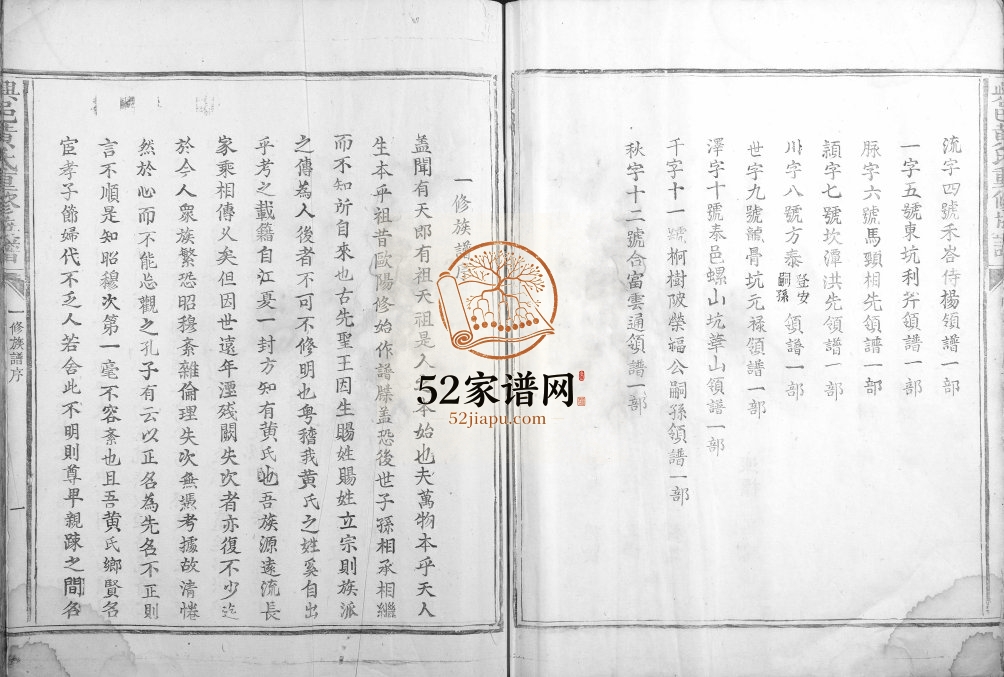 流字四號禾峇侍楊領譜一部
一字五號東坑利斧領譜一部
脉字六號馬頸相先領譜一部
頴字七號坎潭洪先領譜一部
川字八號方泰登安嗣孫領譜一部
世字九號骨坑元祿領譜一部
澤字十號泰邑螺山坑華山領譜一部
千字十一號桐樹陂榮福公嗣孫領譜一部
秋字十二號合富雲通領譜一部
一修族譜序
蓋聞有天郎有祖天祖是人本始也夫萬物本乎天人
生本乎祖昔歐陽修始作譜牒盖恐後世子孫相承相繼
而不知所自來也古先聖王因生賜姓賜姓立宗則族派
之傳為人後者不可不修明也粵稽我黄氏之姓奚自出
乎考之載籍自江夏一封方知有黄氏也吾族源遠流長
家乘相傳乆矣但因世遠年湮残闕失次者亦復不少迄
於今人衆族繁恐昭穆紊雜倫理失次無憑考據故清惓
然於心而不能忘觀之孔子有云以正名為先名不正則
言不順是知昭穆次第一毫不容紊也且吾黄氏鄉賢名
宦孝子節婦代不乏人若舍此不明則尊卑親踈之間名
興邑黄氏重修族譜
一修族譜序
一
興邑黄氏重修族譜
52家谱网
52jiapu.com